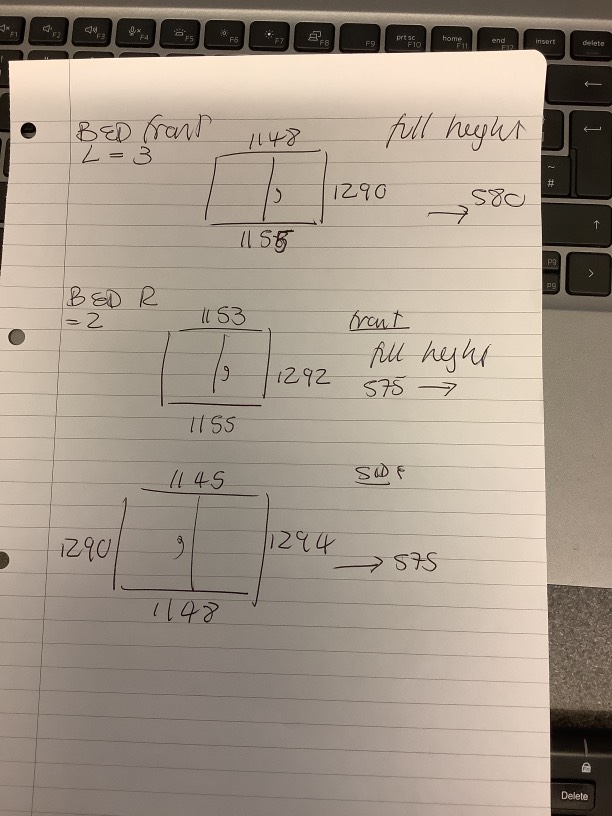 F1
F2
F3
F4
F5
F6
F7
F8
F9
prt sc
F10
home
F11
end
F12
insert
delete
BED front
L = 3
1148
full height
1290
→ 580
~
#
BED R
= 2
1153
front
full height
1292
575 →
1155
pg
pg
1145
SIDE
1290
1294
→ 575
1148
Delete